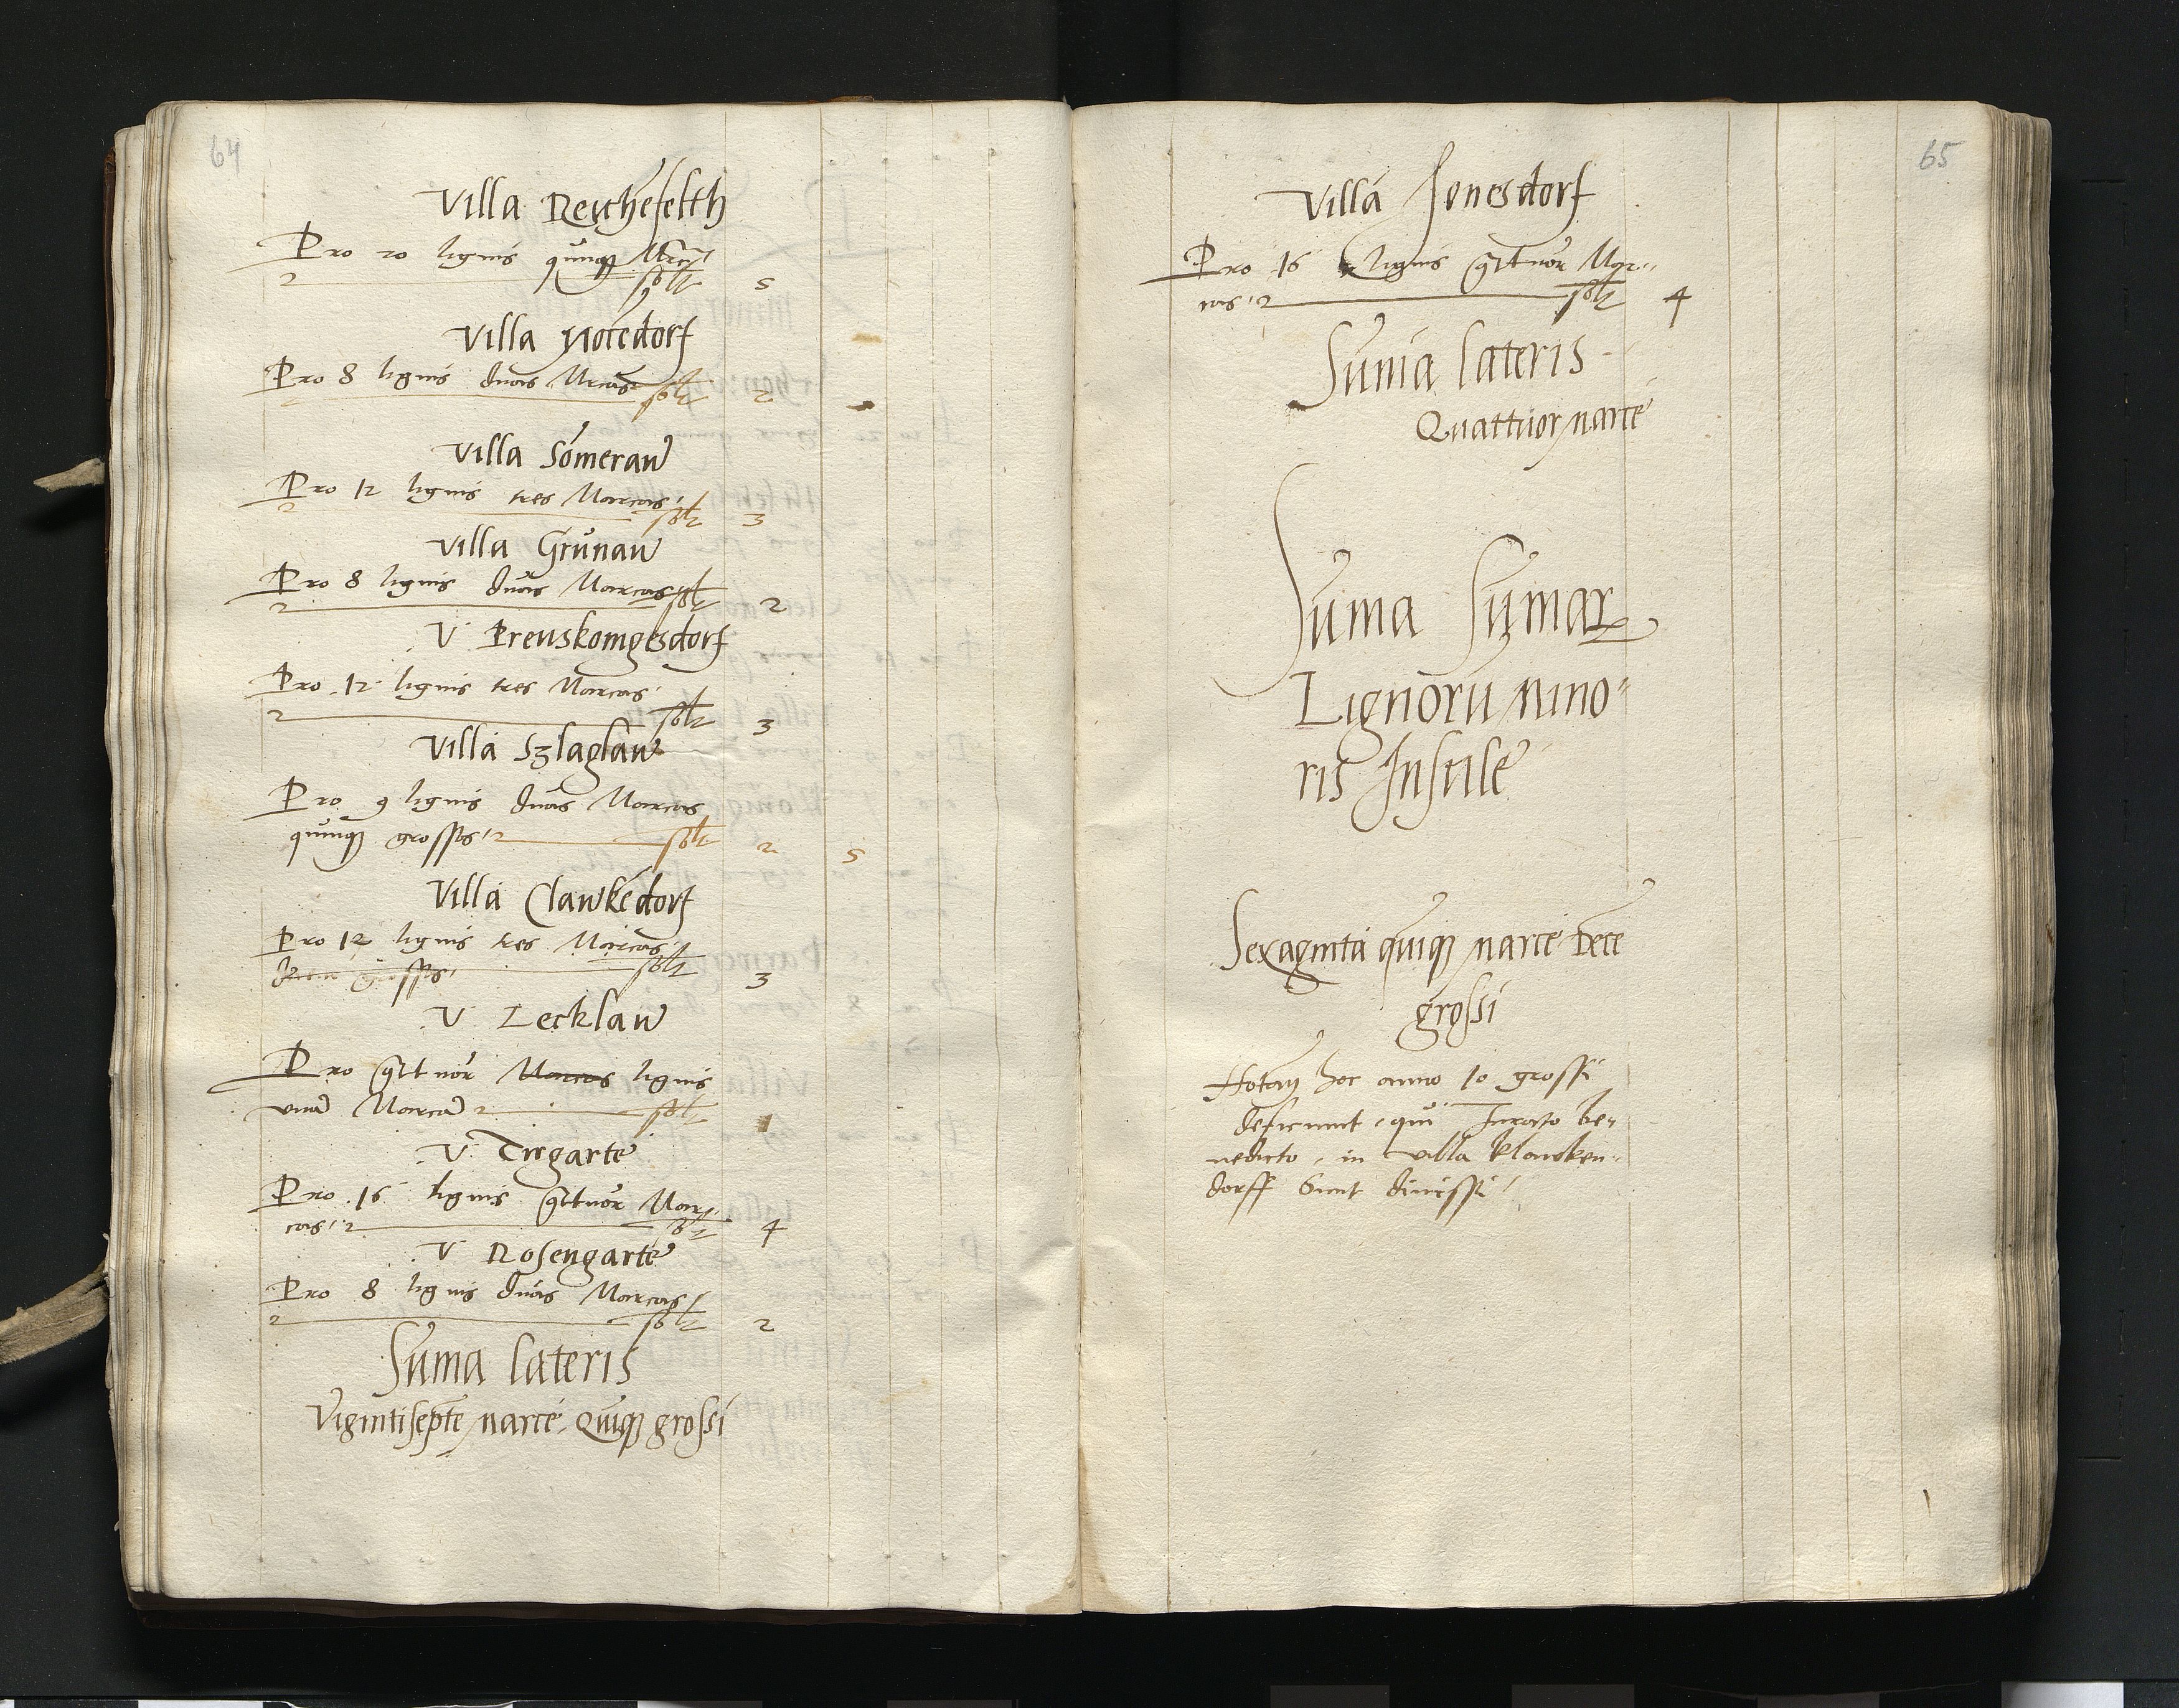 64
Villa Reichefelth
Pro 20 lignis quinq3 Mrcas
solt 5
Villa Notedorf
Pro 8 lignis duas Mrcas solt 2
Villa Someraw
Pro 12 lignis tres Marcas
solt 3
Villa Grunaw
Pro 8 lignis duas Marcas solt 2
V Preuskomgesdorf
Pro 12 lignis tres Marcas
solt 3
Villa Szlaglaw
Pro 9 lignis duas Marcas
quinq3 grossos solt 2 5
Villa Clawkedorf
Pro 12 lignis tres Marcas
grossos solt 3
V Lecklaw
Pro qttuor Marcas lignis
una Marca solt 1
V Tirgarte
Pro 16 lignis qttuor Mar
cas solt 4
V Rosengarte
Pro 8 lignis duas Marcas
solt 2
Suma lateris
Vigintisepte marce quiq3 grossi
65
Villa Jonesdorf
Pro 16 lignis qttuor Mar
cas solt 4
Suma lateris
Quattuor marce
Suma Sumar
Lignoru mino
ris Insule
Sexaginta quiq3 marce dece
grossi
hoc anno 10 grossi
deficiunt qui Jurato be
nedicto in villa klawken
dorff sunt dimissi